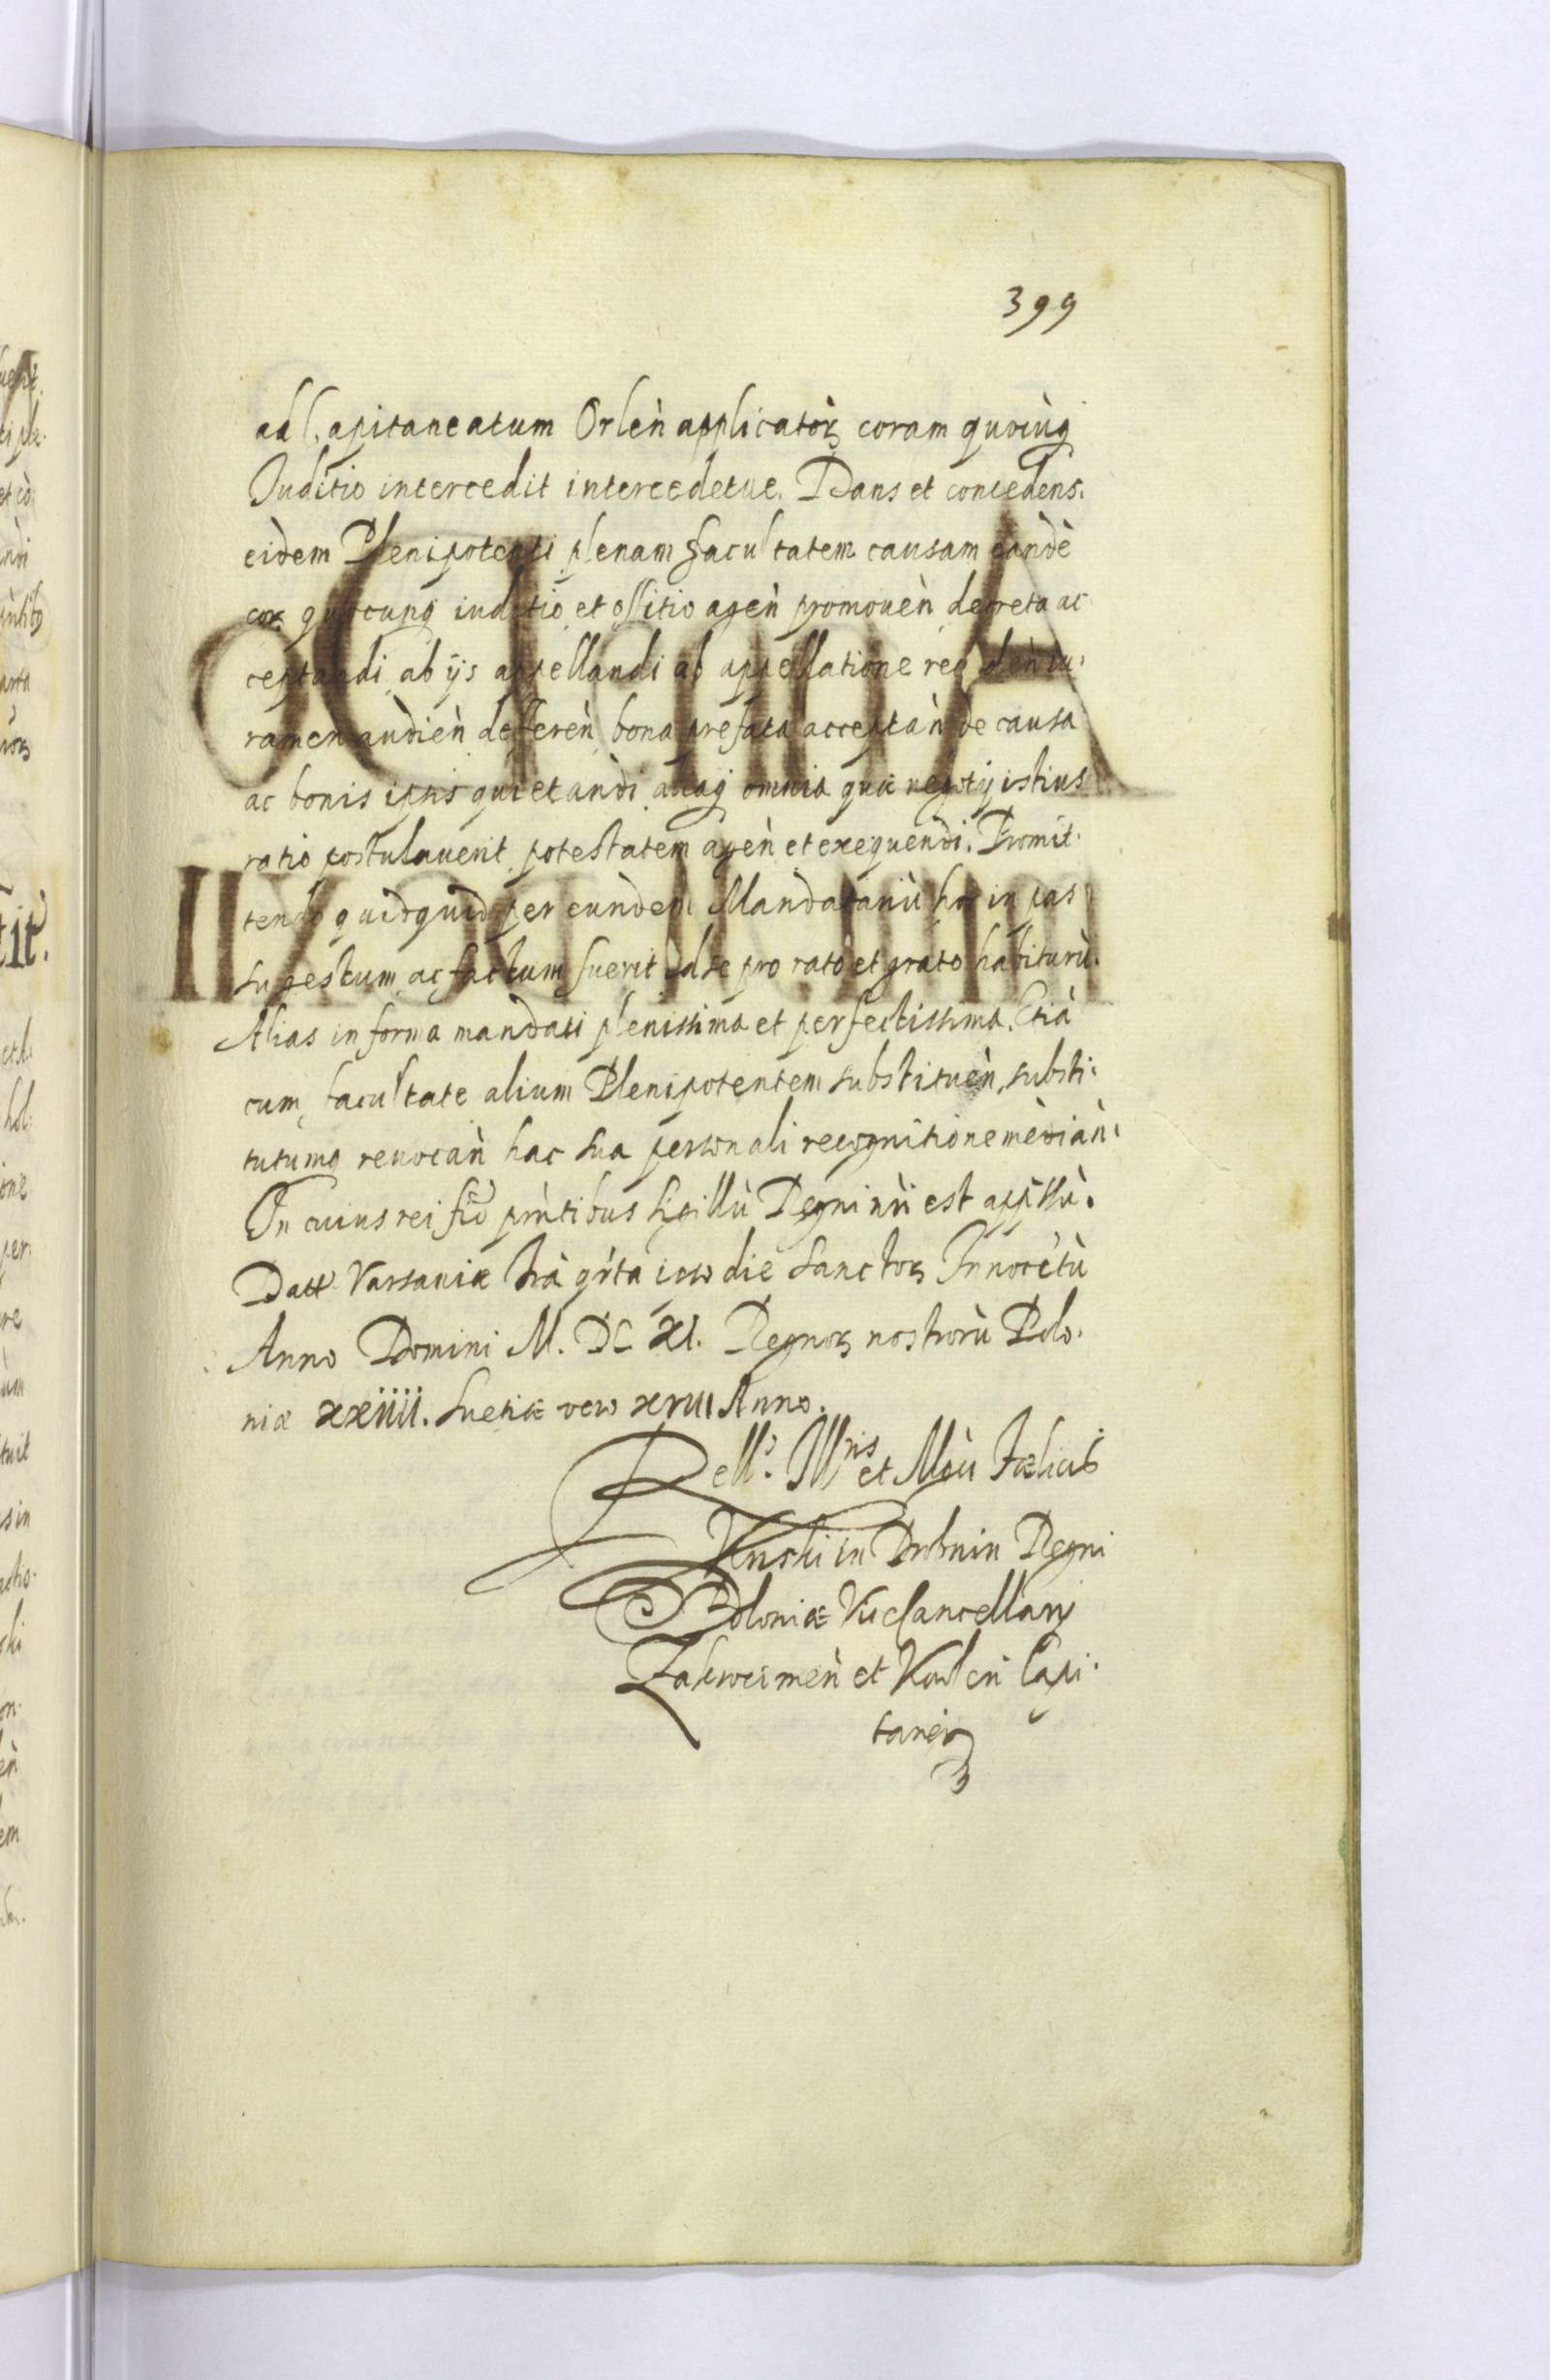 399
ad Capitaneatum Orlen̄ applicatoꝝ coram quocūq
Juditio intercedit intercedetve. Dans et concedens.
eidem Plenipotenti plenam facultatem causam eandē
coꝝ quocunq iuditio et offitio agen̄ promouen̄ decreta ac
ceptandi ab ijs appellandi ab appellatione recedēn iu,
ramen audien̄ deferen̄ bona prefata acceptan̄ de causa
ac bonis ipsis quietandi aliaq omnia quæ negotij istius
ratio postulauerit potestatem agen̄ et exequendi. Promit.
tendo quidquid per eundem Mandatariū hac in pas
su gestum ac factum fuerit id se pro rato et grato habiturū.
Alias in forma mandati plenissima et perfectissima. Etiā
cum facultate alium Plenipotentem substituen̄, substi:
tutumq reuocan̄ hac sua personali recognitione mēdian̄.
In cuius rei fid̄ pn̄tibus sigillū Regni nr̄i est app̄ssū.
Datt Varsauiæ fr̄a q̄rta ipso die Sanctoꝝ Innocētū
Anno Domini M. DC XI. Regnoꝝ nostrorū Polo.
niæ xxiiii. Suetiæ vero xviii Anno.
Rell. Illris et Mci Fœlicis
Kriski in Drobnin Regni
Poloniæ Vicecancellarij
Zakroczimen̄ et Kowlen̄ Capi.
tanei
DomA